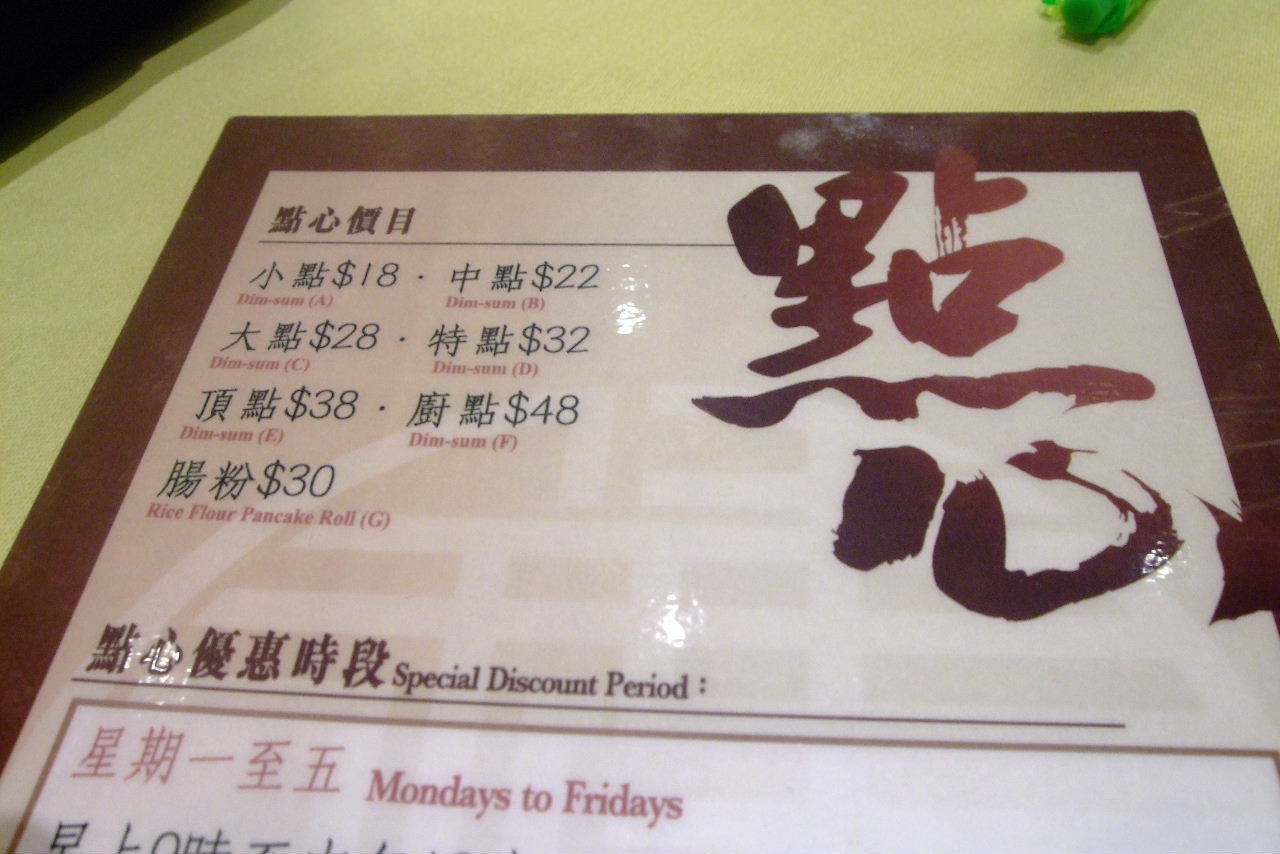 點心
點心價目
小點$18 · 中點$22
Dim-sum (A) Dim-sum (B)
大點$28 · 特點$32
Dim-sum (C) Dim-sum (D)
頂點$38 · 廚點$48
Dim-sum (E) Dim-sum (F)
腸粉$30
Rice Flour Pancake Roll (G)
點心優惠時段 Special Discount Period：
星期一至五 Mondays to Fridays